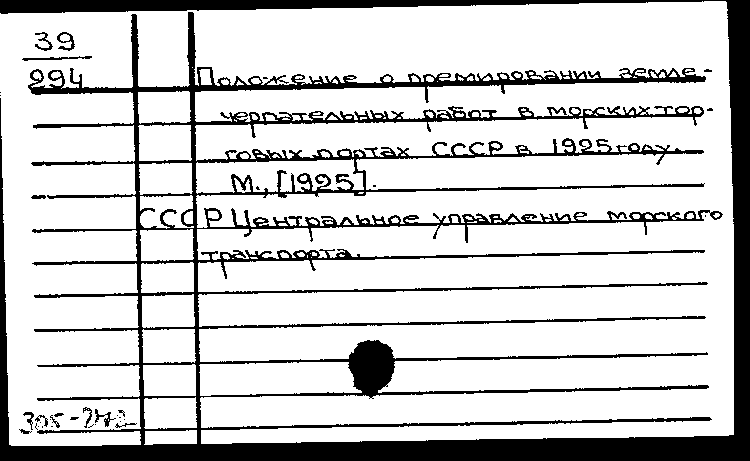 39
294
Положение о премировании земле-
черпательных работ в морских тор-
говых портах СССР в 1925 году.
М., [1925].
СССР Центральное управление морского
транспорта.